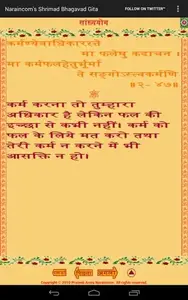 Naraincom's Shrimad Bhagavad Gita
FOLLOW ON TWITTER"
सांख्ययोग
कर्मण्येवाधिकारस्ते
मा फलेषु कदाचन ।
मा कर्मफलहेतुर्भूर्मा
ते सङ्गोऽस्त्वकर्मणि
॥२- ४७॥
कर्म करना तो तुम्हारा
अधिकार है लेकिन फल की
इच्छा से कभी नहीं। कर्म को
फल के लिये मत करो तथा
तेरी कर्म न करने में भी
आसक्ति न हो।
Copyright © 2013 Prateek Arora Naraincom. All rights reserved.